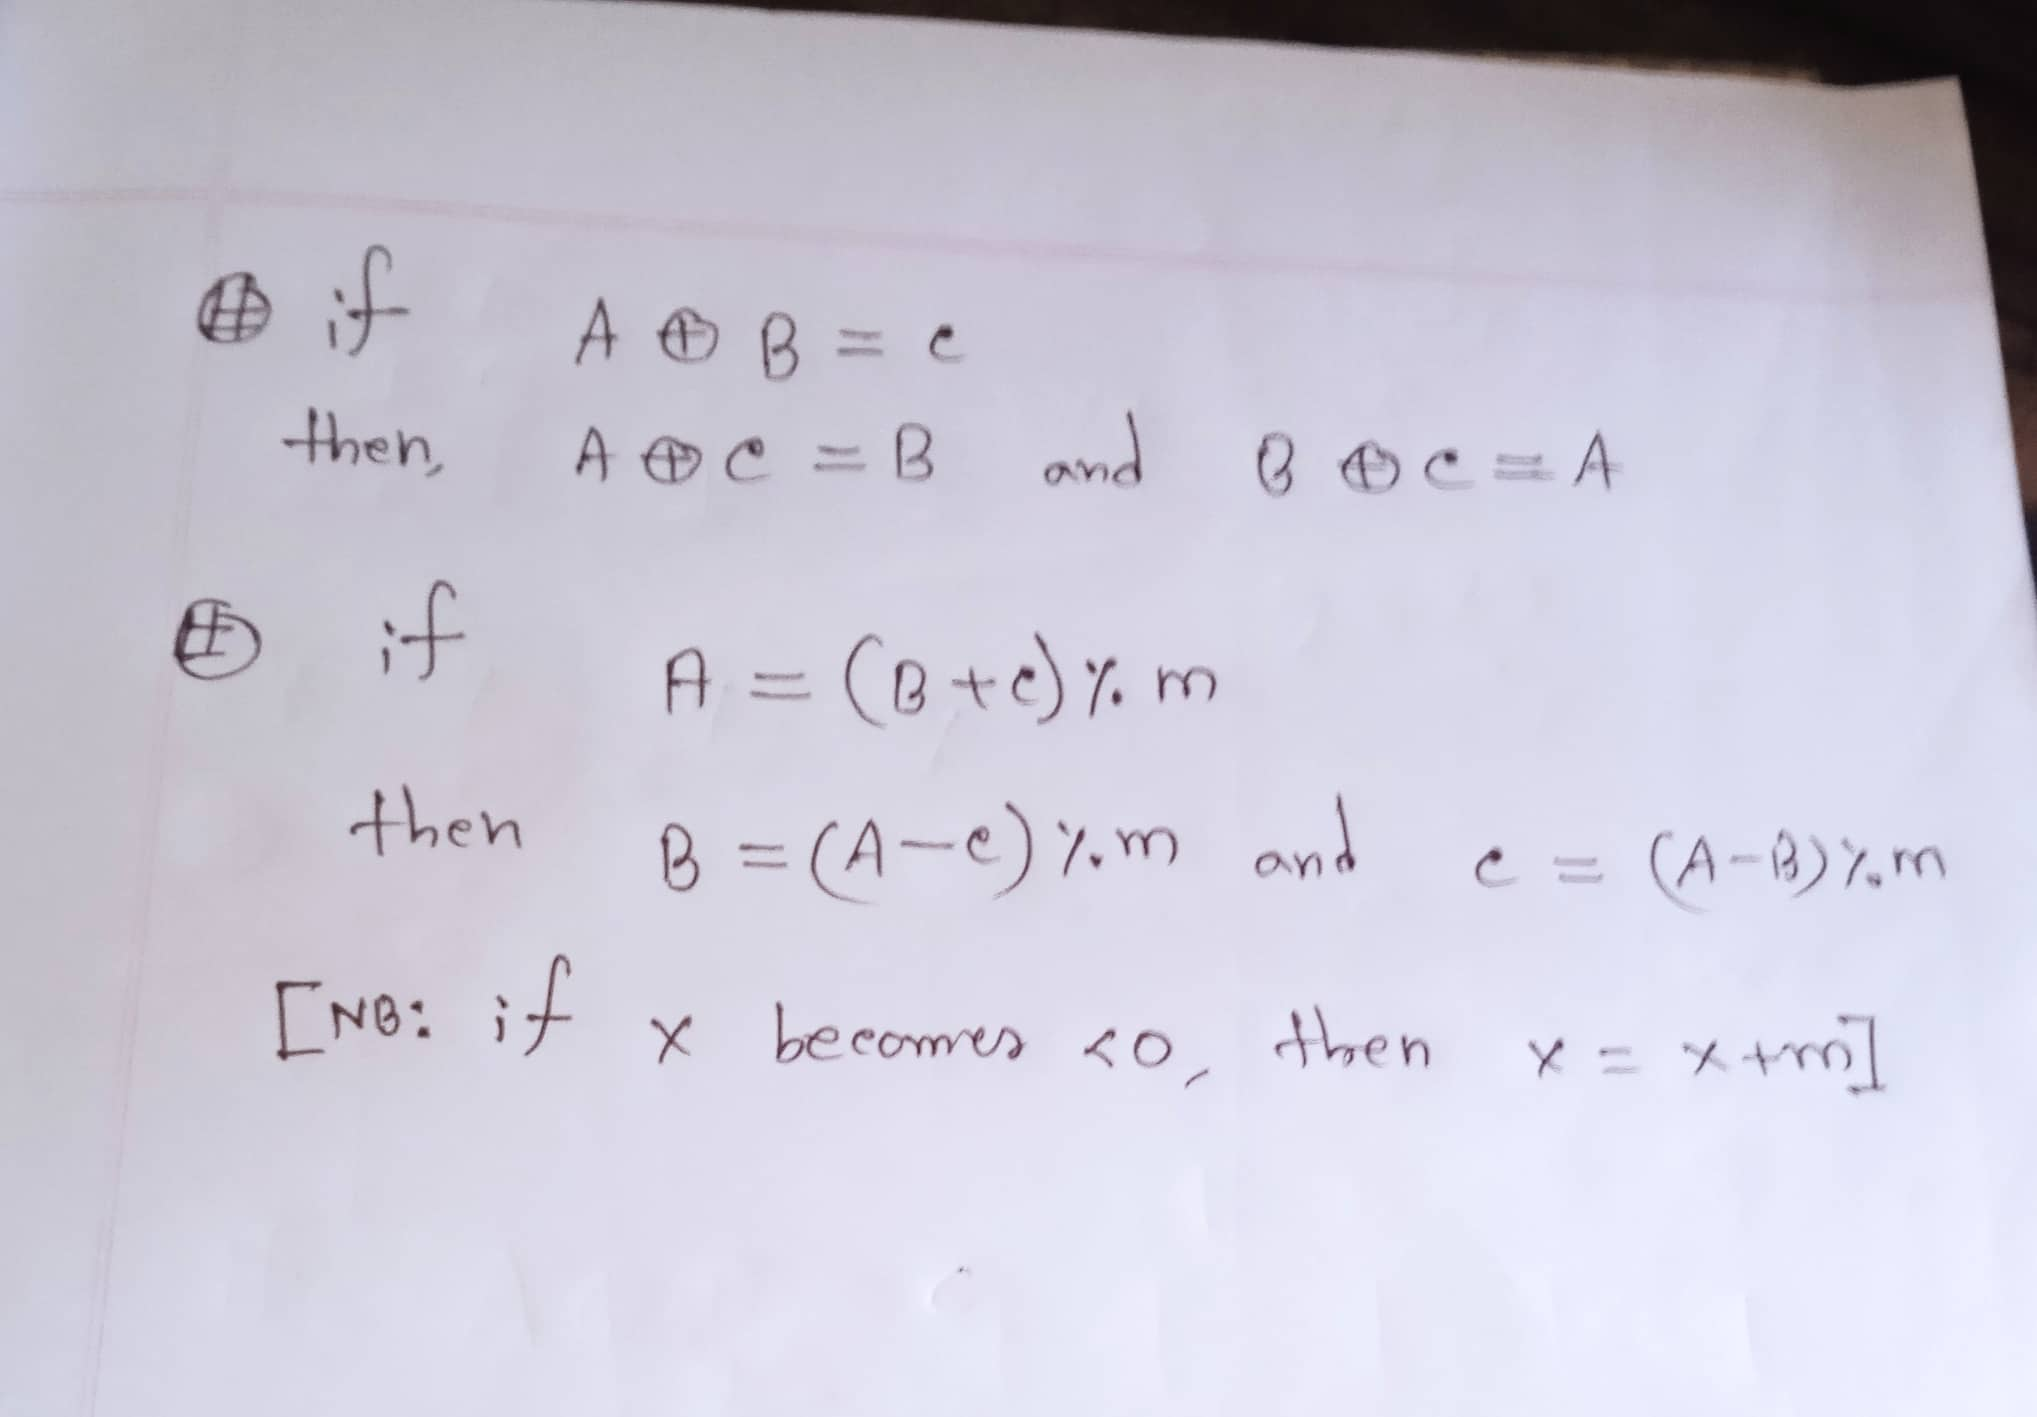 ⊕ if A ⊕ B = c
then, A ⊕ c = B and B ⊕ c = A
⊕ if A = (B + c) % m
then B = (A - c) % m and c = (A - B) % m
[NB: if x becomes <0, then x = x + m]